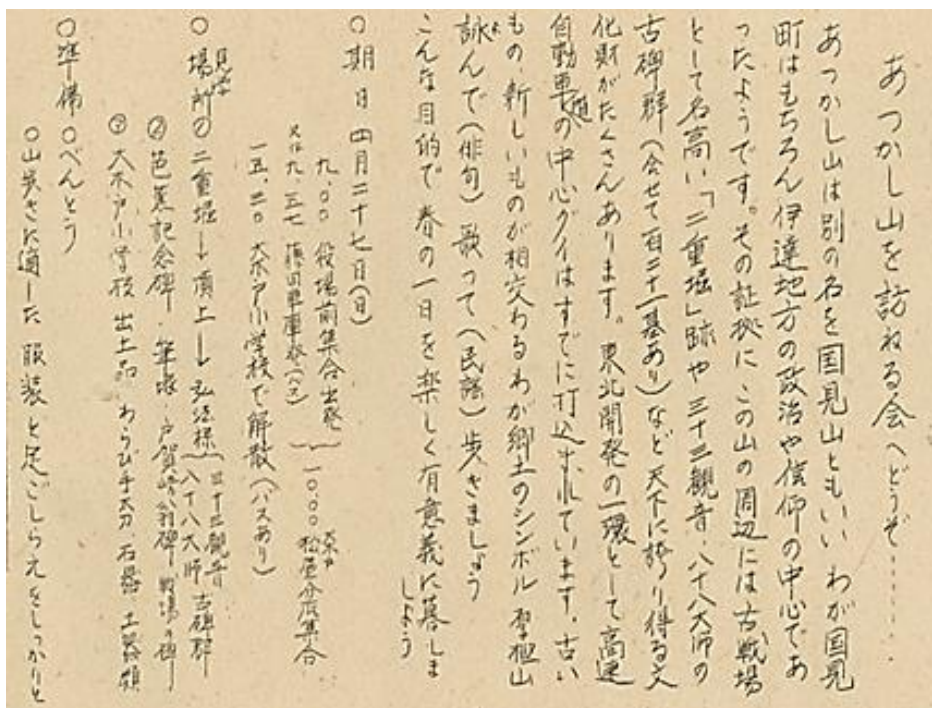 あつかし山を訪ねる会へどうぞ……
あつかし山は別の名を国見山ともいい わが国見
町はもちろん伊達地方の政治や信仰の中心であ
ったようです。その証拠に この山の周辺には古戦場
として名高い「二重堀」跡や 三十三観音・八十八大師の
古碑群(合せて百二十一基あり)など 天下に誇り得る文
化財がたくさんあります。東北開発の一環として高速
自動車道の中心グイはすでに打込まれています。古い
もの、新しいものが相交わるわが郷土のシンボル 聖祖山
詠んで(俳句)歌って(民謡)歩きましょう
こんな目的で春の一日を楽しく有意義に暮しま
しょう
○期 日 四月二十七日(日)
九.○○ 役場前集合出発
九.三七 藤田車庫発(バス)
一○.○○ 集合
一五.二○ 大木戸小学校で解散(バスあり)
○見学場所 ① 二重堀→頂上→弘法様 三十三観音 八十八大師 古碑群
② 芭蕉記念碑・筆塚・戸賀崎翁碑・戦場の碑
③ 大木戸小学校 出土品 わらび手大刀 石器 土器類
○準備 ○べんとう
○山歩きに適した 服装と足ごしらえをしっかりと